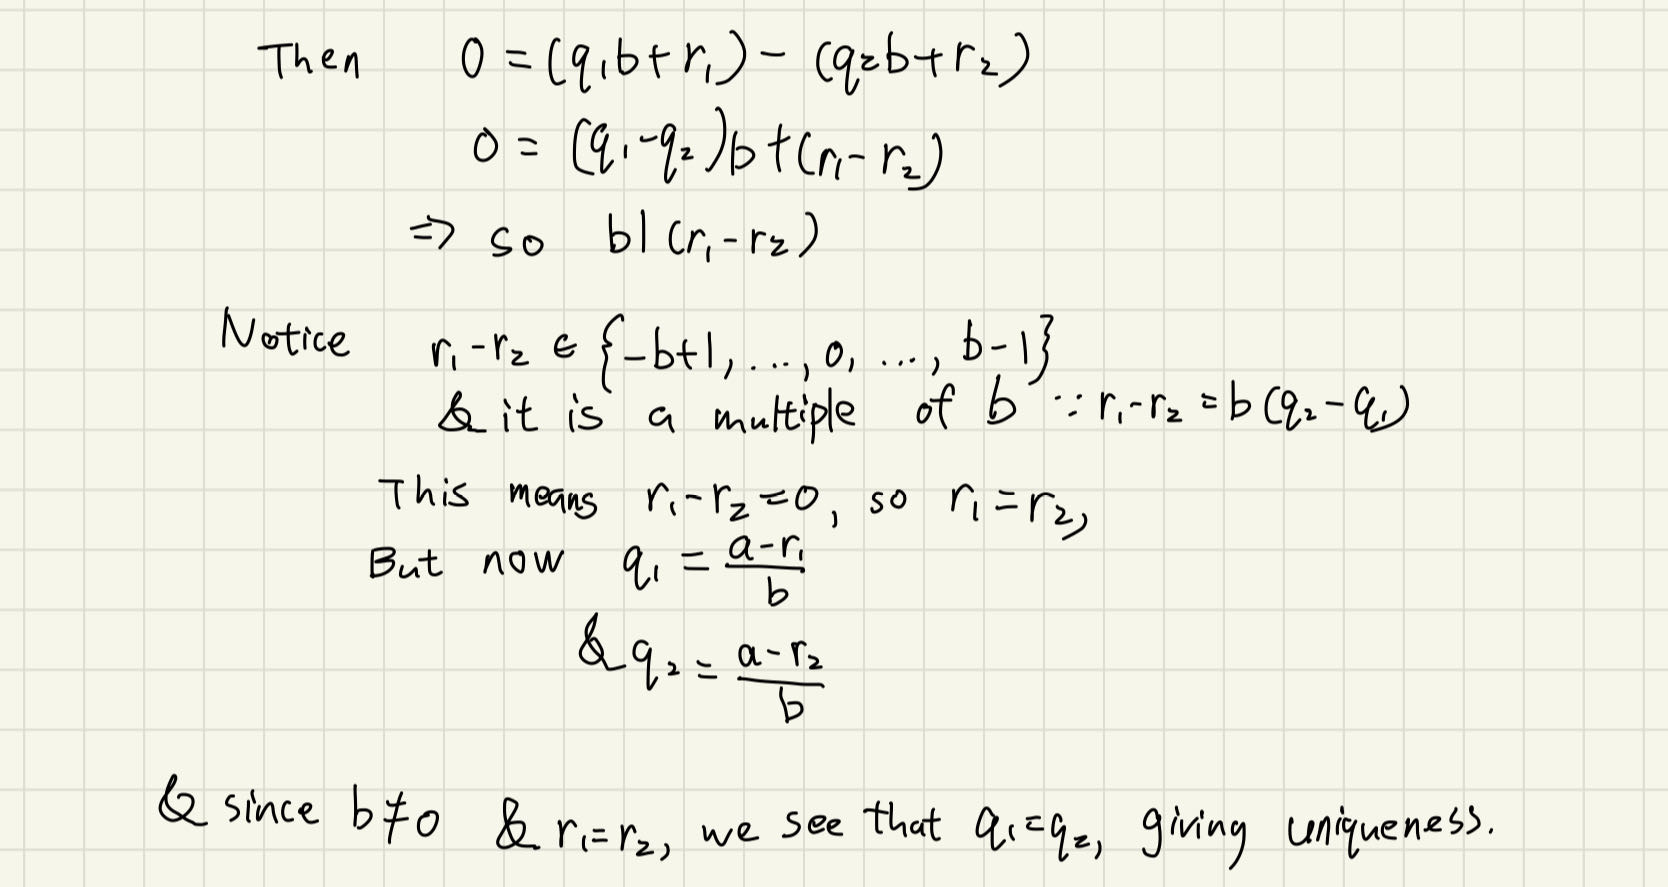 Then 0 = (q₁b + r₁) - (q₂b + r₂)
0 = (q₁ - q₂)b + (r₁ - r₂)
⇒ so b | (r₁ - r₂)
Notice r₁ - r₂ ∈ {-b+1, ..., 0, ..., b-1}
& it is a multiple of b ∵ r₁ - r₂ = b(q₂ - q₁)
This means r₁ - r₂ = 0, so r₁ = r₂,
But now q₁ = \frac{a - r₁}{b}
& q₂ = \frac{a - r₂}{b}
& since b ≠ 0 & r₁ = r₂, we see that q₁ = q₂, giving uniqueness.